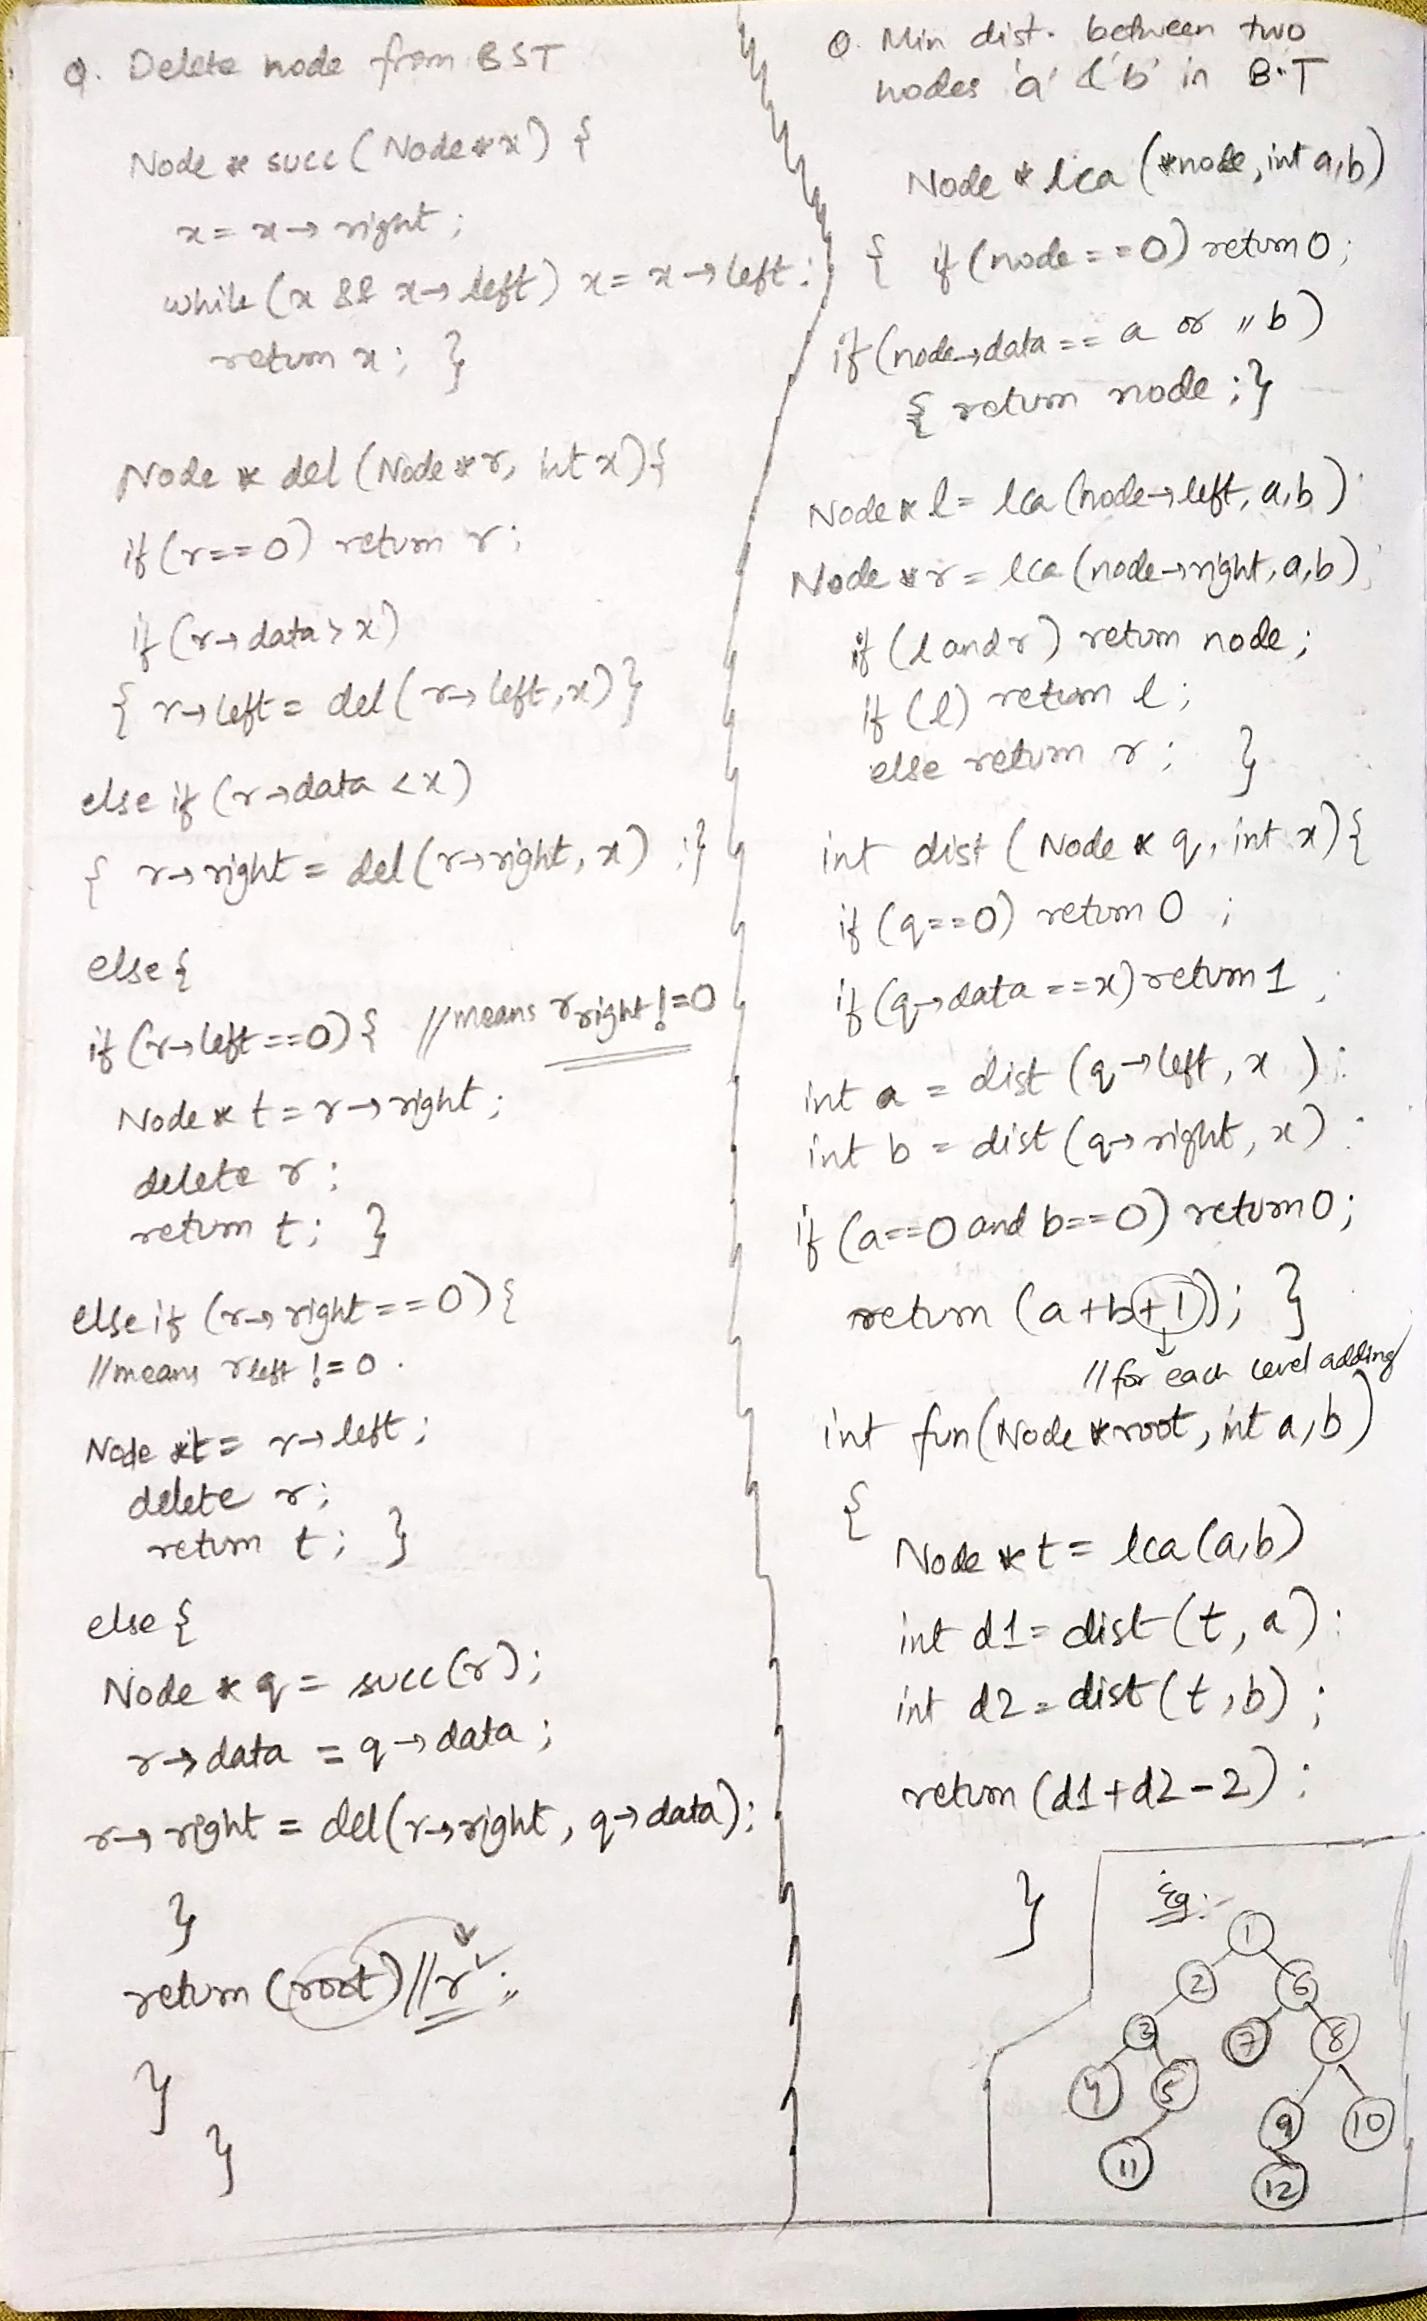 Q. Delete node from BST
Node * succ (Node *x) {
x = x → right ;
while (x && x → left) x = x → left ;
return x ; }
Node * del (Node *r, int x) {
if (r==0) return r ;
if (r → data > x)
{ r → left = del (r → left, x) }
else if (r → data < x)
{ r → right = del (r → right, x) ; }
else {
if (r → left ==0) { // means r right != 0
Node * t = r → right ;
delete r ;
return t ; }
else if (r → right == 0) {
// means r left != 0 .
Node *t = r → left ;
delete r ;
return t ; }
else {
Node * q = succ (r) ;
r → data = q → data ;
r → right = del (r → right, q → data) ;
}
return (root) // r ;
}
}
Q. Min dist. between two
nodes 'a' & 'b' in B.T
Node * lca (*node, int a,b)
{ if (node == 0) return 0 ;
if (node → data == a or 〃 b)
{ return node ; }
Node * l = lca (node → left, a,b) ;
Node * r = lca (node → right, a,b) ;
if (l and r) return node ;
if (l) return l ;
else return r ; }
int dist (Node * q, int x) {
if (q==0) return 0 ;
if (q → data == x) return 1 ;
int a = dist (q → left, x ) ;
int b = dist (q → right, x) ;
if (a==0 and b==0) return 0 ;
return (a+b+1) ; }
// for each level adding
int fun (Node *root, int a,b)
{
Node * t = lca (a,b)
int d1 = dist (t, a) ;
int d2 = dist (t, b) ;
return (d1 + d2 - 2) ;
}
Eg:-
1
2 6
3 7 8
4 5 9 10
11 12